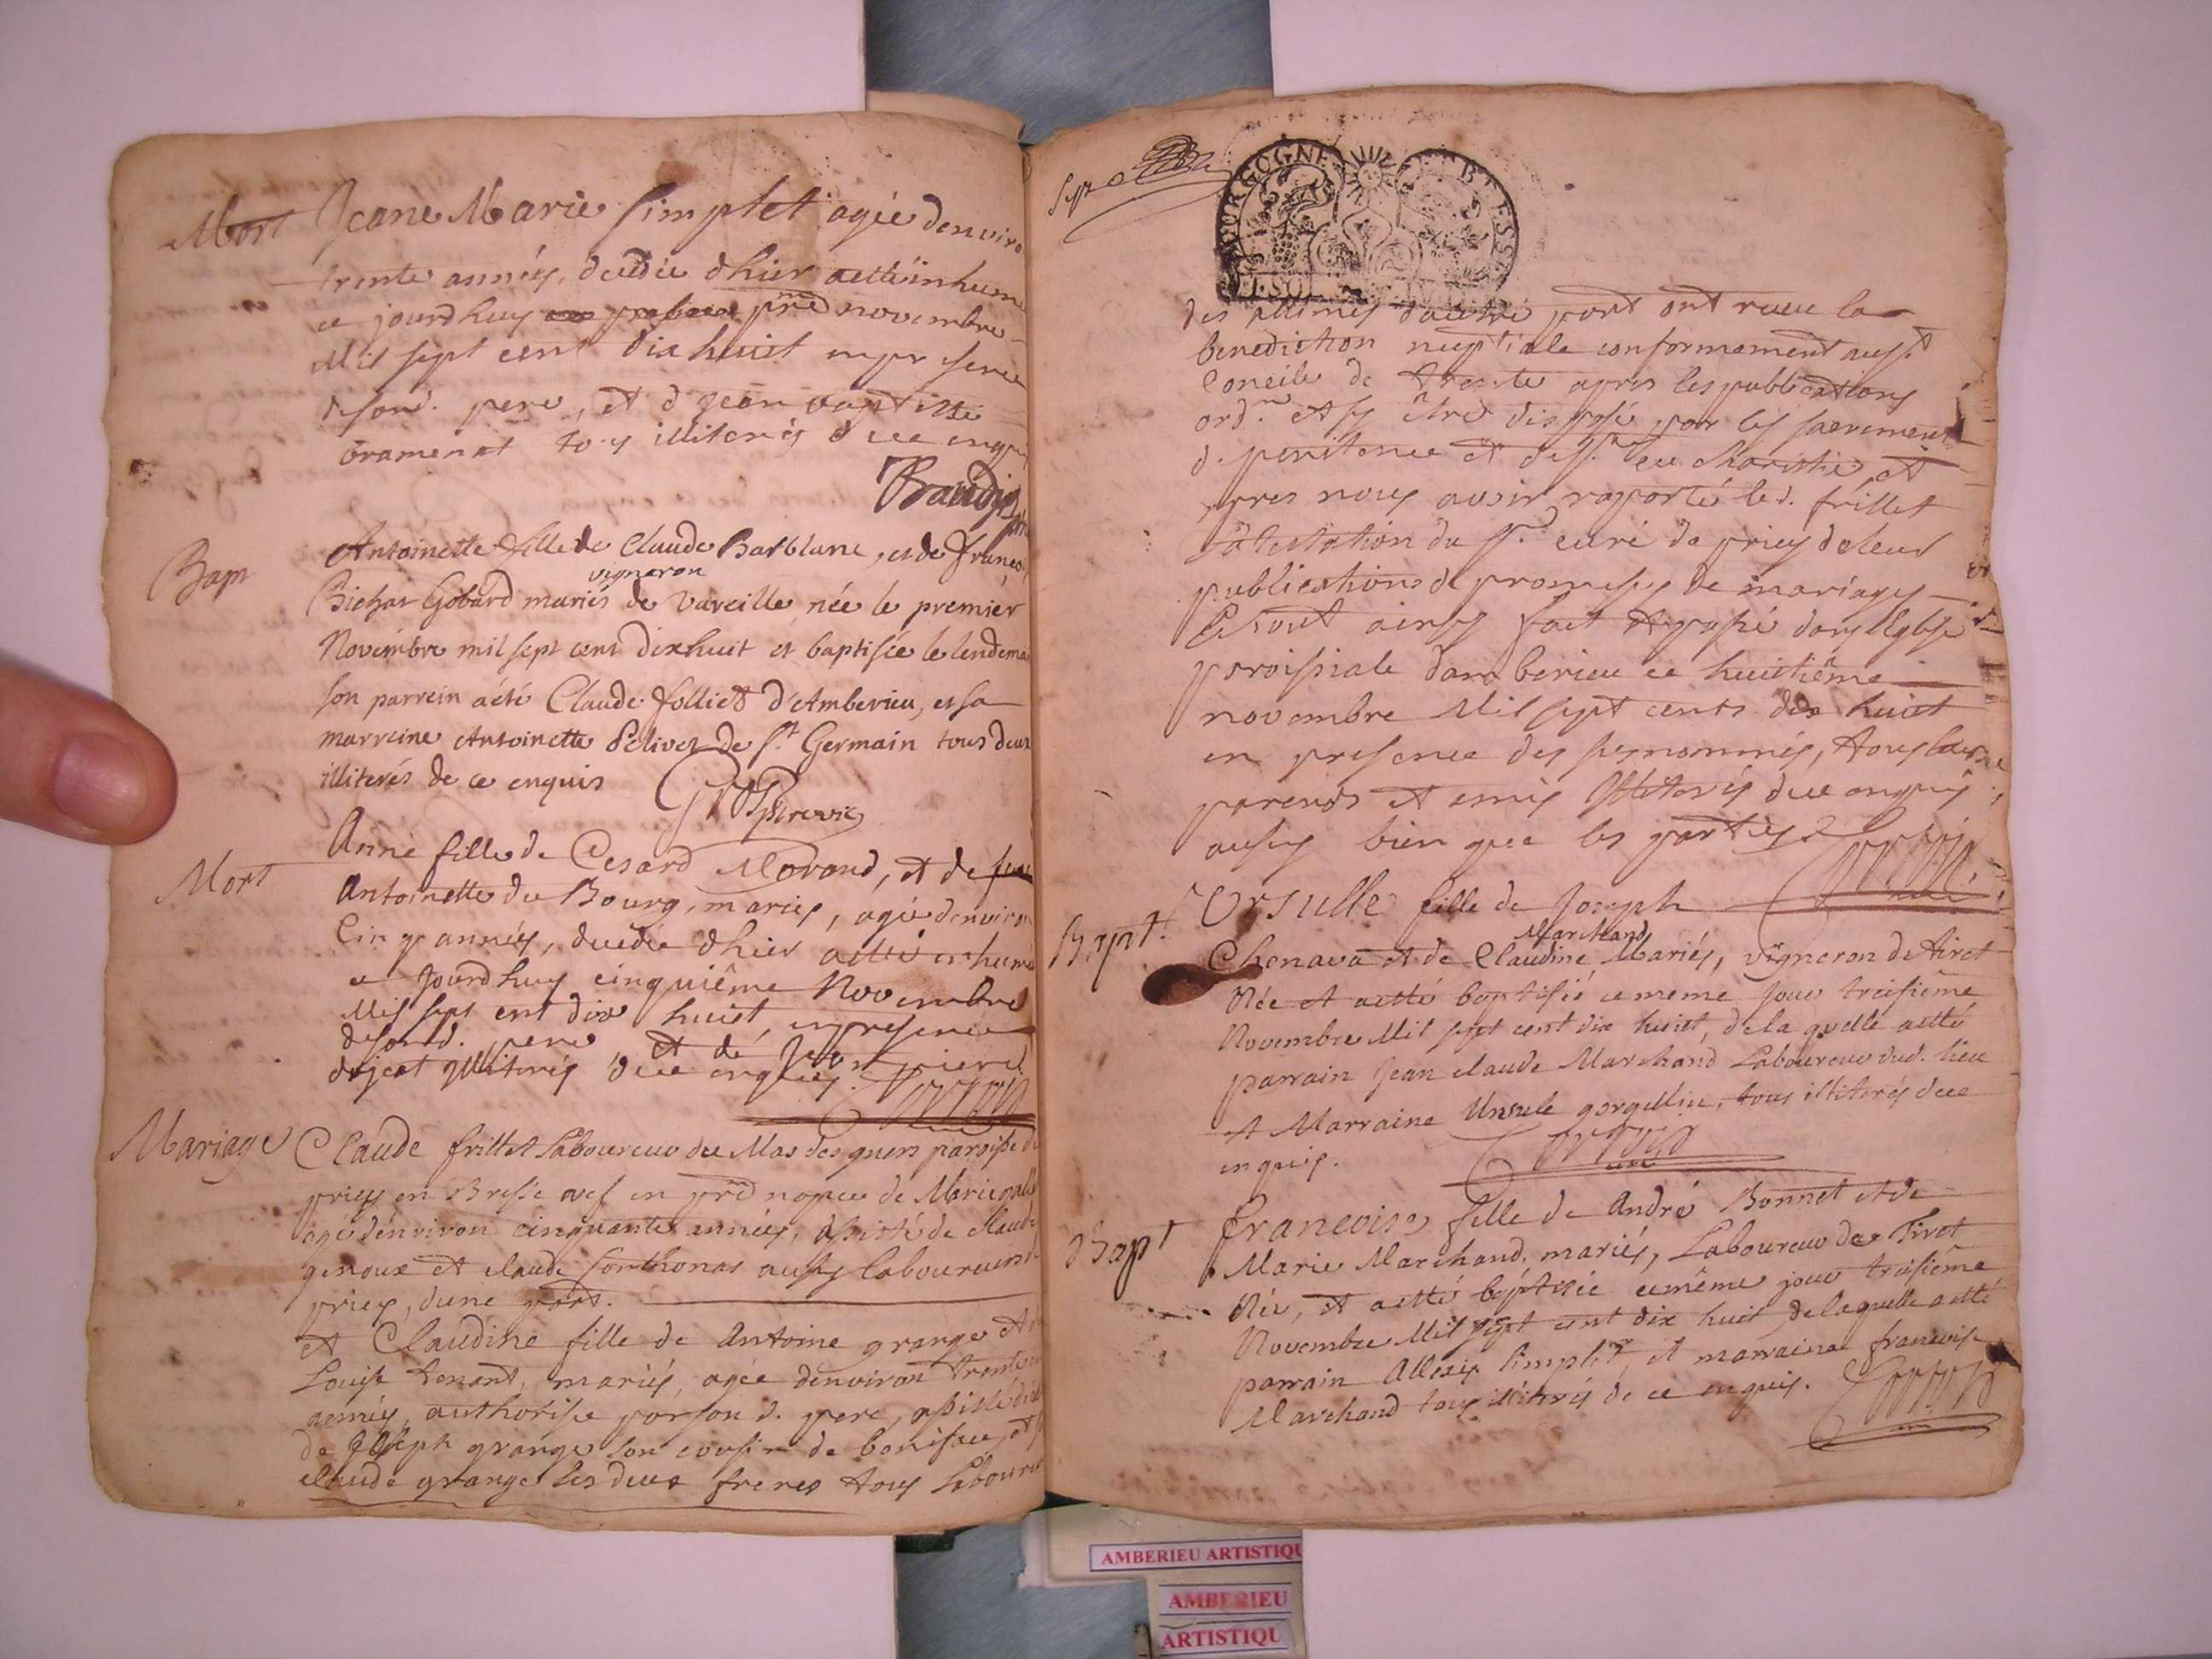 Mort
Jeane Marie Simplet agée denviro
trente années, decedée dhier aetté inhum
ce jourdhuy pred novembre
Mil sept cent dix huict en presence
de sond. pere, et d jean baptiste
tous illiterés de ce enquis
Bapt
Antoinette fille de Claude Barblanc, et de
vigneron
Bichat Gobard mariés de Vareille née le premier
Novembre mil sept cent dixhuit et baptisée le lendema
son parrein a été Claude folliet d'Amberieu, et sa
marreine Antoinette Pelivet de St Germain tous deux
illiterés de ce enquis
Mort
Anne fille de Cesard Morand, et de feue
Antoinette du Bourg, mariés, agée denviron
Cinq années, decedée dhier aetté inhumé
ce Jourdhuy cinquiême Novembre
Mil sept cent dix huict, en presence
de sond. pere et de Jean pierre
dujeat illiterés de ce enquis.
Mariage
Claude frillet Laboureur du Mas des paroisse de
priey en Bresse vef en pred nopces de Marie
agé denviron cinquante années, assisté de claude
genoux et claude sonthonas aussy laboureurs d
priey, dune part.
et Claudine fille de Antoine grange et
Louise tenant, mariés, agée denviron trente
années, authorisée par son d. pere, assistée
de Joseph grange son cousin de boniface, et
claude grange les deux freres tous laboureu
Sept
BOURGOGNE BRESSE
SOL
des autre part ont receu la
benediction nuptiale conformement au st
Concile de trente apres les publications
ordres et sy être disposé par les sacrements
de penitence et du st eucharistie et
apres nous avoir raporté led. frillet
latestation du sr curé de priey de leur
publications de promesses de mariages
Le tout ainsy fait et passé dans leglise
paroissiale damberieu ce huictiême
novembre Mil sept cents dix huict
en presence des susnommés, tous leurs
parents et amis illiterés de ce enquis
aussy bien que les parties
Bapt.
Ursulle fille de Joseph
Marchand
Chenava et de Claudine Mariés, vigneron de tiret
Née et aetté baptisée ce meme jour treisiême
Novembre Mil sept cent dix huict, de la quelle aetté
parrain Jean claude Marchand Laboureur dud. lieu
et Marraine Ursule gorgellin, tous illiterés de ce
enquis.
curé
Bapt
francoise fille de André Bonnet et de
Marie Marchand, mariés, Laboureur de Tiret
Née, et aetté baptisée ce même jour treisiême
Novembre Mil sept cent dix huit de laquelle aetté
parrain Allexis Simplet, et marraine francoise
Marchand tous illiterés de ce enquis.
AMBERIEU ARTISTIQU
AMBERIEU
ARTISTIQU